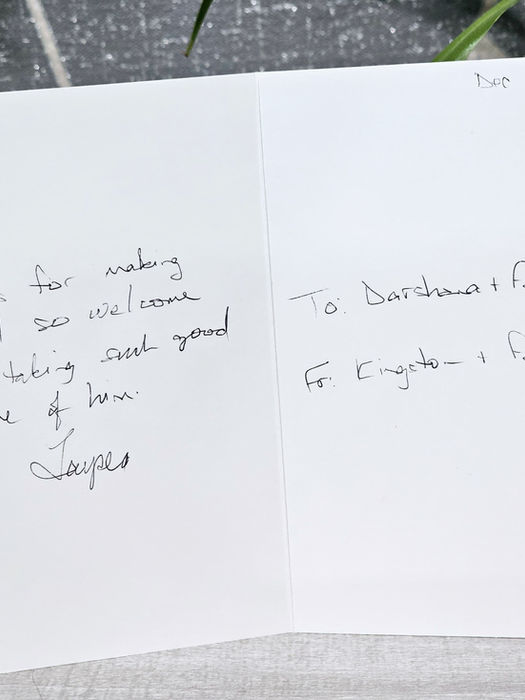 for making
so welcome
taking such good
of him.
Dec
To: Darshana +
Fr: Kingston +